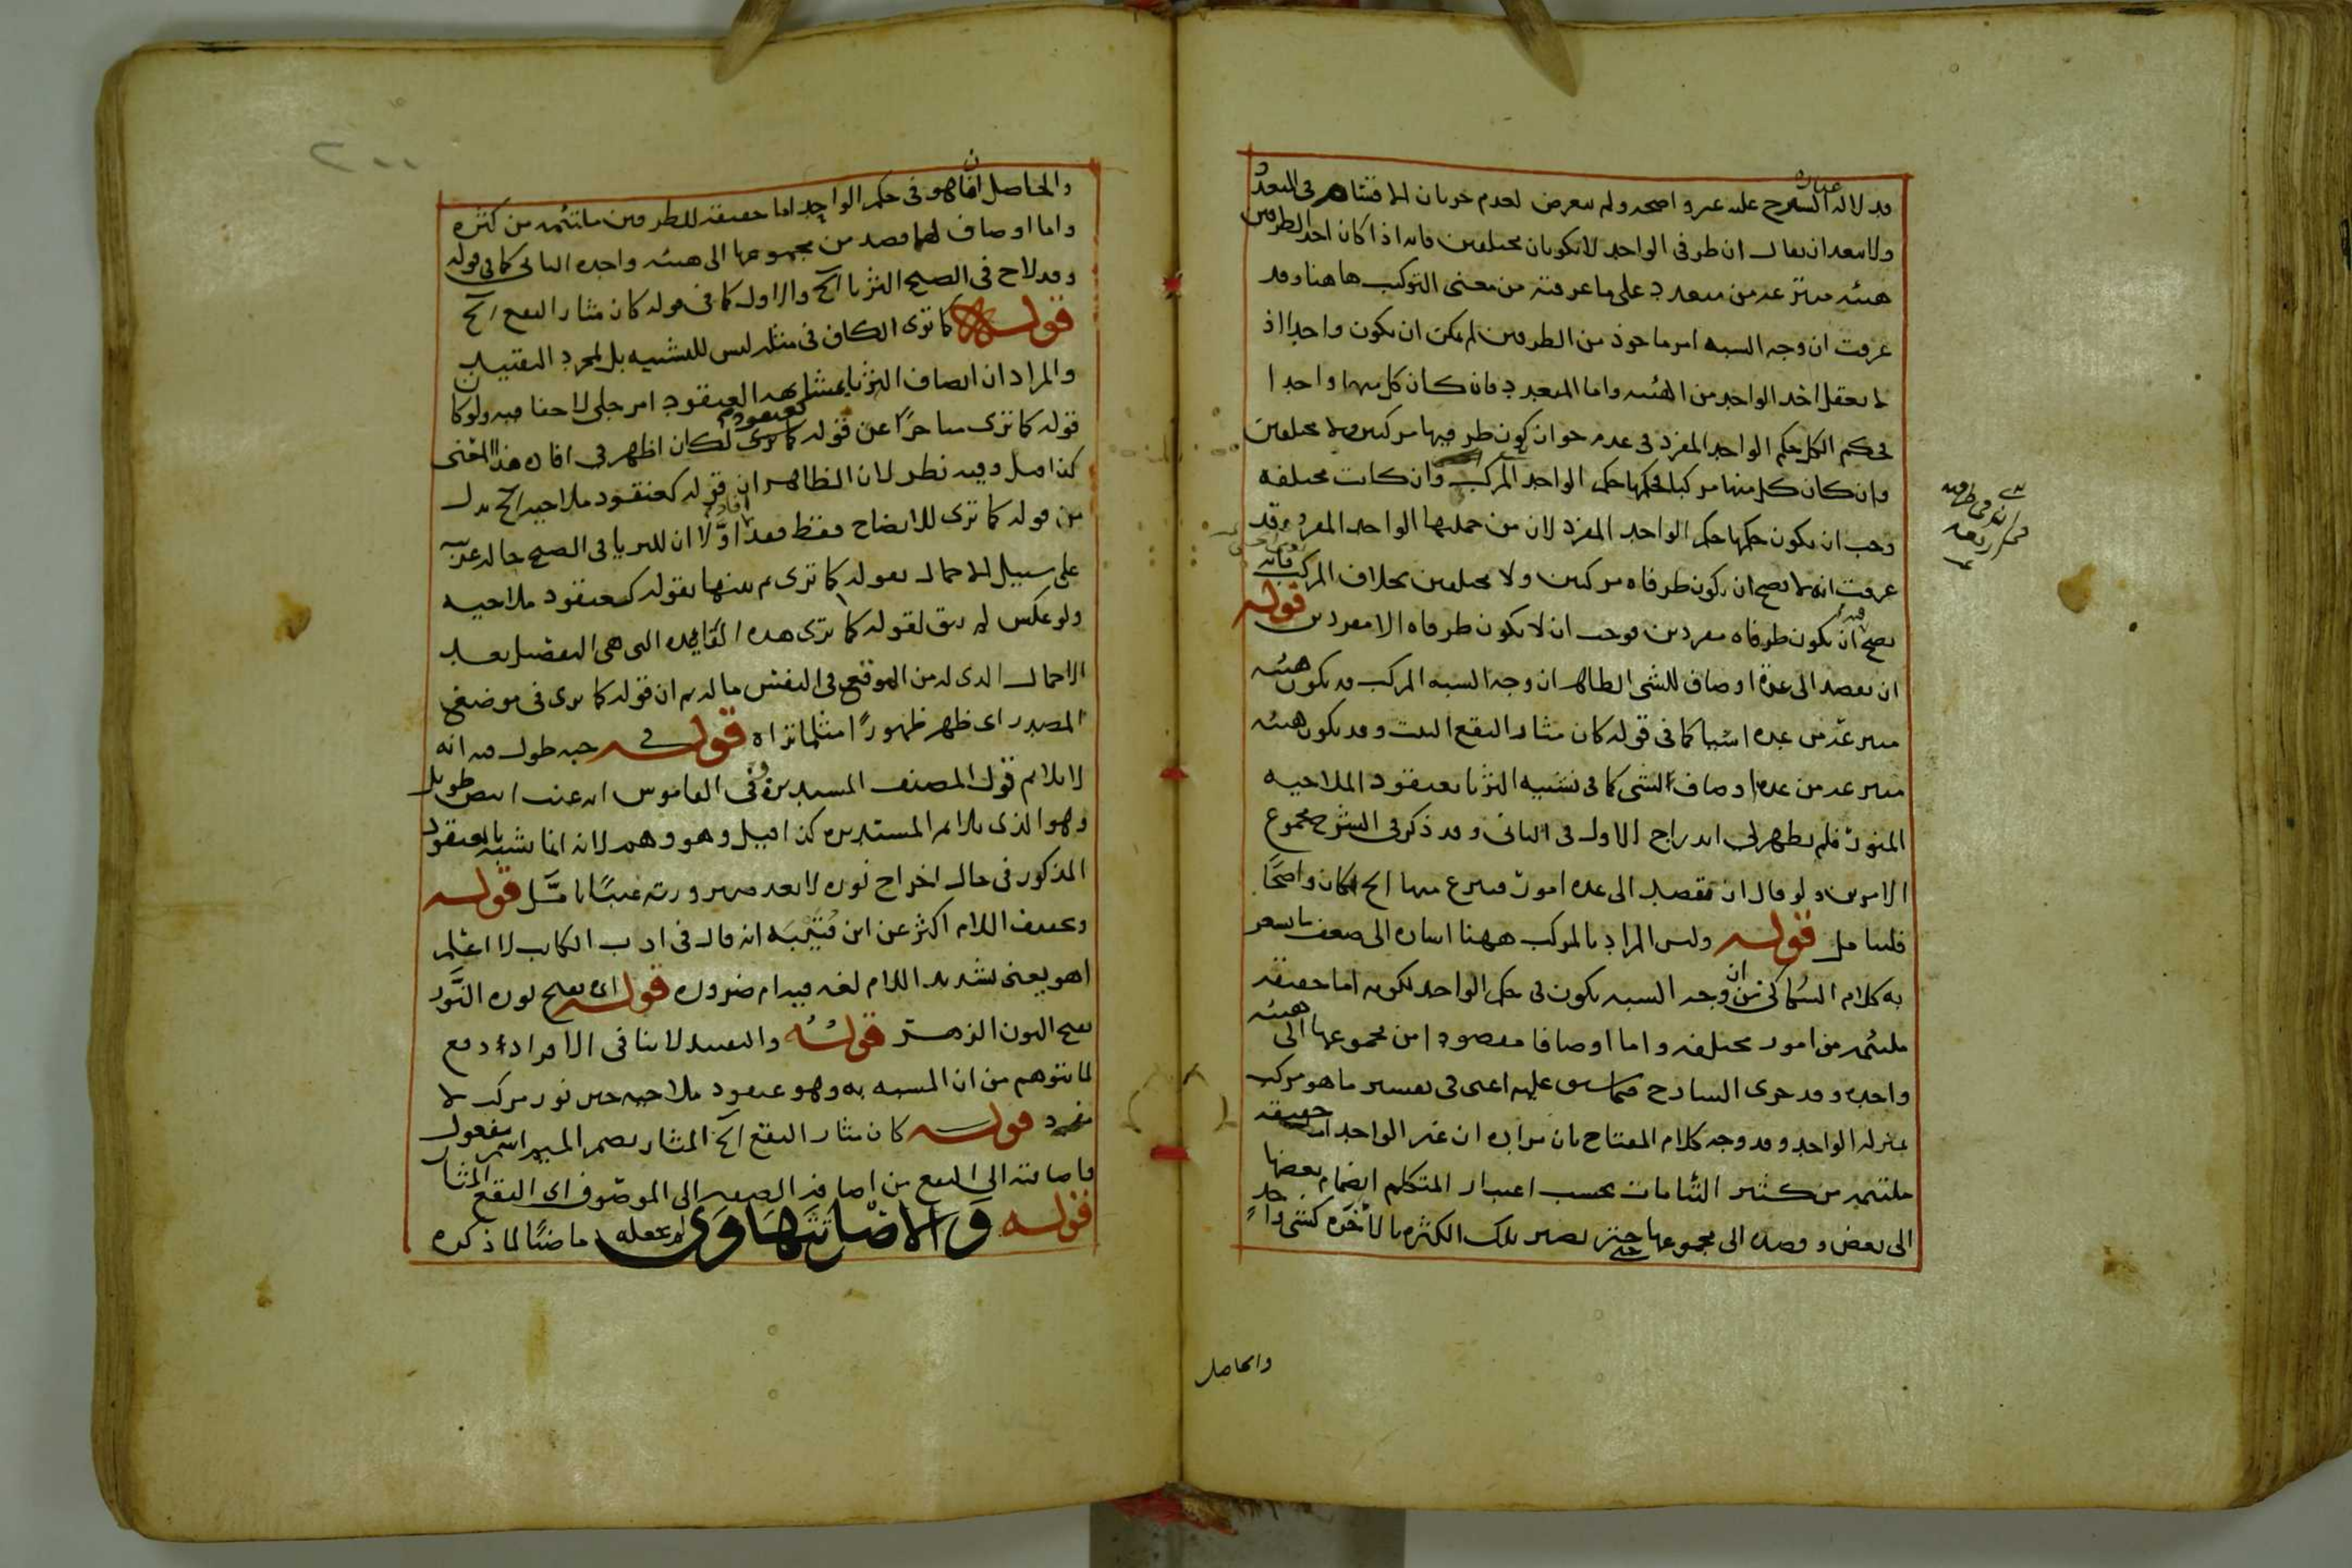 فدلالة الشرح عليه غير واضحة ولم يتعرض لعدم جريان الاقسام في المتعدد
عبارة
ولا يبعد ان يقال ان طرفي الواحد لا يكونان مختلفين فانه اذا كان احد الطرفين
هيئة منتزعة من متعدد على ما عرفته من معنى التركيب ها هنا وقد
عرفت ان وجه الشبه امر ماخوذ من الطرفين لم يمكن ان يكون واحدا اذ
لا يعقل اخذ الواحد من الهيئة واما المتعدد فان كان كل منها واحدا
فحكم الكل حكم الواحد المفرد في عدم جواز كون طرفيها مركبين ولا مختلفين
وان كان كل منها مركبا فحكمها حكم الواحد المركب وان كانت مختلفة
وجب ان يكون حكمها حكم الواحد المفرد لان من جملتها الواحد المفرد وقد
عرفت انه لا يصح ان يكون طرفاه مركبين ولا مختلفين بخلاف المركب فانه
يصح ان يكون طرفاه مفردين فوجب ان لا يكون طرفاه الا مفردين قوله
ان يقصد الى عدة اوصاف للشي الظاهر ان وجه الشبه المركب قد يكون هيئة
منتزعة من عدة اشيا كما في قوله كان مثار النقع البيت وقد يكون هيئة
منتزعة من عدة اوصاف الشي كما في تشبيه الثريا بعنقود الملاحية
المنور فلم يظهر لي اندراج الاول في الثاني وقد ذكر في الشرح مجموع
الامرين ولو قال ان يقصد الى عدة امور فينتزع منها الخ لكان واضحًا
فليتامل قوله وليس المراد بالمركب ههنا اشارة الى ضعف ما يشعر
به كلام السكاكي من ان وجه الشبه يكون في حكم الواحد لكونه اما حقيقة
ملتئمة من امور مختلفة واما اوصافا مقصودا من مجموعها الى هيئة
واحدة وقد جرى الشارح فيما سبق عليه اعني في تفسير ما هو مركب
بمنزلة الواحد وقد وجه كلام المفتاح بان مراده ان غير الواحد اما حقيقة
ملتئمة من كثير التئامات بحسب اعتبار المتكلم انضمام بعضها
الى بعض وقصده الى مجموعها حتى تصير تلك الكثرة بالاخرة كشي واحد
والحاصل
والحاصل ان ما هو في حكم الواحد اما حقيقة للطرفين ملتئمة من كثرة
واما اوصاف لهما قصد من مجموعها الى هيئة واحدة الثاني كما في قوله
وقد لاح في الصبح الثريا الخ والاول كما في قوله كان مثار النقع الخ
قوله كما ترى الكاف في مثله ليس للتشبيه بل لمجرد التقييد
والمراد ان اتصاف الثريا بمشابهة العنقود امر جلي لا خفا فيه ولو كان
قوله كما ترى متاخرًا عن قوله كعنقود لكان اظهر في افادة هذا المعنى
كذا قيل وفيه نظر لان الظاهر ان قوله كعنقود ملاحية الخ بدل
من قوله كما ترى للايضاح فقط فقد افاد اولًا ان للثريا في الصبح حالة غريبة
على سبيل الاجمال بقوله كما ترى ثم بينها بقوله كعنقود ملاحية
ولو عكس لم يبق لقوله كما ترى هذه الفائدة التي هي التفضيل بعد
الاجمال الذي له من الموقع في النفس ما له ثم ان قوله كما ترى في موضع
المصدر اى ظهر ظهورًا مثلما تراه قوله في حبه طول فيه انه
لا يلائم قول المصنف المستديرة وفي القاموس انه عنب ابيض طويل
وهو الذي يلائم المستديرة كذا قيل وهو وهم لانه انما شبه بالعنقود
المذكور في حال اخراج نوره لا بعد صيرورته عنبًا تامل قوله
وتخفيف اللام اكثر عن ابن قتيبة انه قال في ادب الكاتب لا اعلم
اهو يعني تشديد اللام لغة فيه ام ضرورة قوله اى تفتح نوره النَّور
بفتح النون الزهر قوله والتقييد لا ينافي الافراد دفع
لما يتوهم من ان المشبه به وهو عنقود ملاحية حين نور مركب لا
مفرد قوله كان مثار النقع الخ المثار بضم الميم اسم مفعول
فاضافته الى النقع من اضافة الصفة الى الموصوف اى النقع المثار
قوله والاصل تتهاوى لم يجعله ماضيًا لما ذكره